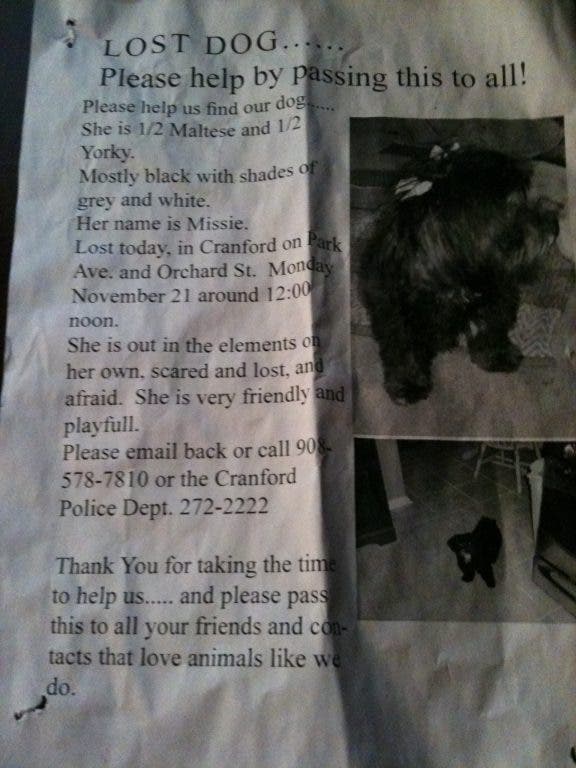 LOST DOG......
Please help by passing this to all!
Please help us find our dog......
She is 1/2 Maltese and 1/2
Yorky.
Mostly black with shades of
grey and white.
Her name is Missie.
Lost today, in Cranford on Park
Ave. and Orchard St. Monday
November 21 around 12:00
noon.
She is out in the elements on
her own, scared and lost, and
afraid. She is very friendly and
playfull.
Please email back or call 908-
578-7810 or the Cranford
Police Dept. 272-2222
Thank You for taking the time
to help us..... and please pass
this to all your friends and con-
tacts that love animals like we
do.